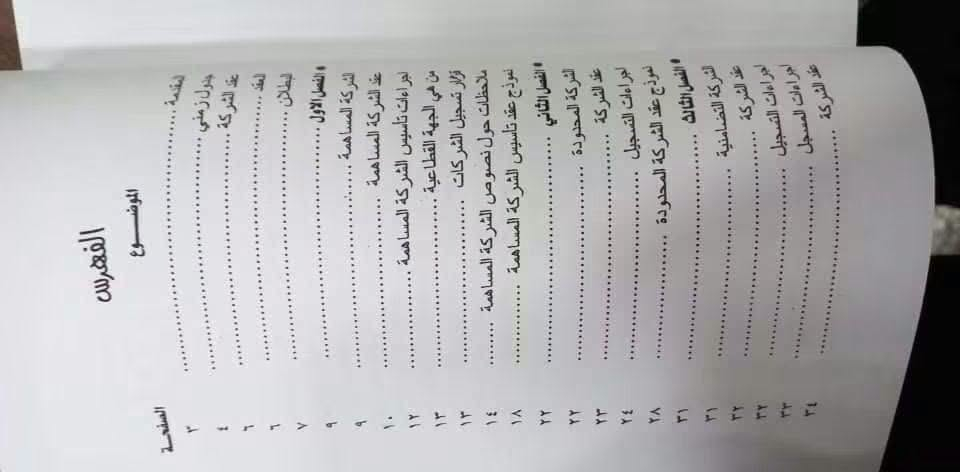 الفهرس
الموضـــوع الصفحـة
المقدمة ........ ٣
جدول زمني ........ ٤
عقد الشركة ........ ٦
العقد ........ ٦
البطلان ........ ٧
* الفصل الاول ........ ٩
الشركة المساهمة ........ ٩
عقد الشركة المساهمة ........ ١٠
اجراءات تاسيس الشركة المساهمة ........ ١٢
من هي الجهة القطاعية ........ ١٣
قرار تسجيل الشركات ........ ١٣
ملاحظات حول نصوص الشركة المساهمة ........ ١٤
نموذج عقد تاسيس الشركة المساهمة ........ ١٨
* الفصل الثاني ........ ٢٢
الشركة المحدودة ........ ٢٢
عقد الشركة ........ ٢٣
اجراءات التسجيل ........ ٢٤
نموذج عقد الشركة المحدودة ........ ٢٨
* الفصل الثالث ........ ٣١
الشركة التضامنية ........ ٣١
عقد الشركة ........ ٣٢
اجراءات التسجيل ........ ٣٢
اجراءات المسجل ........ ٣٣
عقد الشركة ........ ٣٤